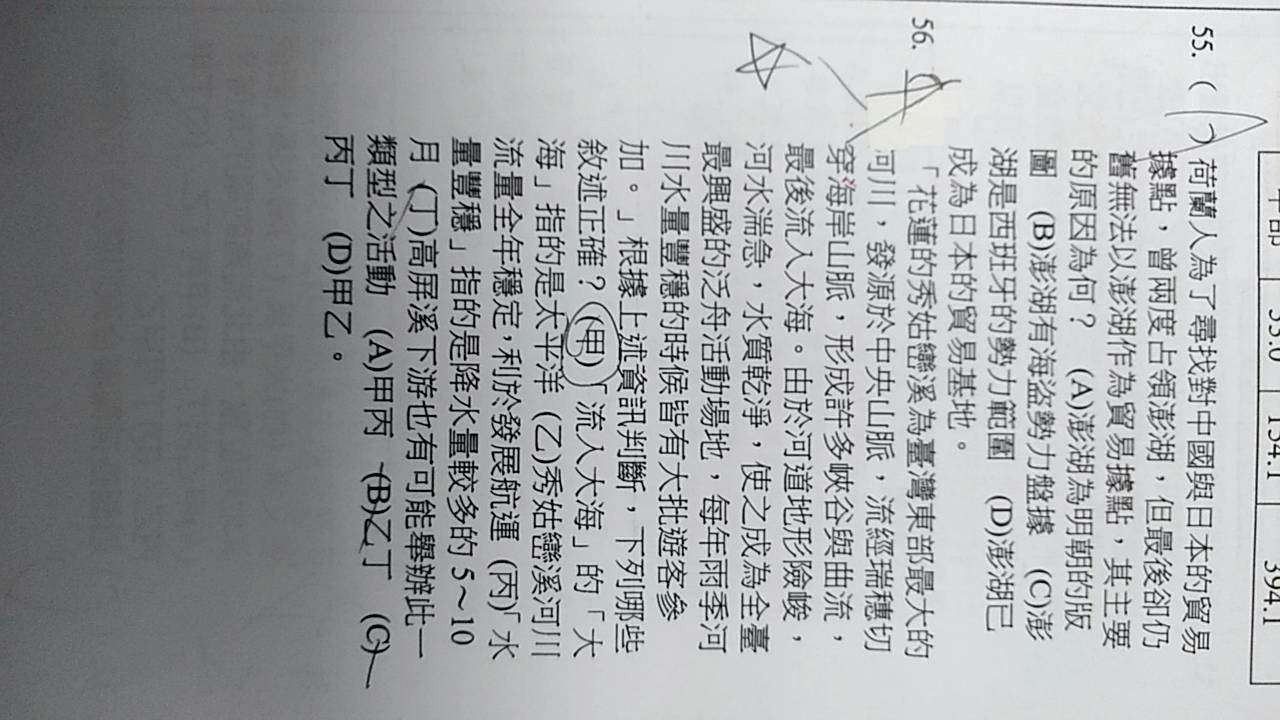 年部 33.0 134.1 394.1
55. ( ) 荷蘭人為了尋找對中國與日本的貿易
據點，曾兩度占領澎湖，但最後卻仍
舊無法以澎湖作為貿易據點，其主要
的原因為何？ (A)澎湖為明朝的版
圖 (B)澎湖有海盜勢力盤據 (C)澎
湖是西班牙的勢力範圍 (D)澎湖已
成為日本的貿易基地。
56. 「花蓮的秀姑巒溪為臺灣東部最大的
河川，發源於中央山脈，流經瑞穗切
穿海岸山脈，形成許多峽谷與曲流，
最後流入大海。由於河道地形險峻，
河水湍急，水質乾淨，使之成為全臺
最興盛的泛舟活動場地，每年雨季河
川水量豐穩的時候皆有大批遊客參
加。」根據上述資訊判斷，下列哪些
敘述正確？ (甲)「流入大海」的「大
海」指的是太平洋 (乙)秀姑巒溪河川
流量全年穩定，利於發展航運 (丙)「水
量豐穩」指的是降水量較多的 5～10
月 (丁)高屏溪下游也有可能舉辦此一
類型之活動 (A)甲丙 (B)乙丁 (C)
丙丁 (D)甲乙。